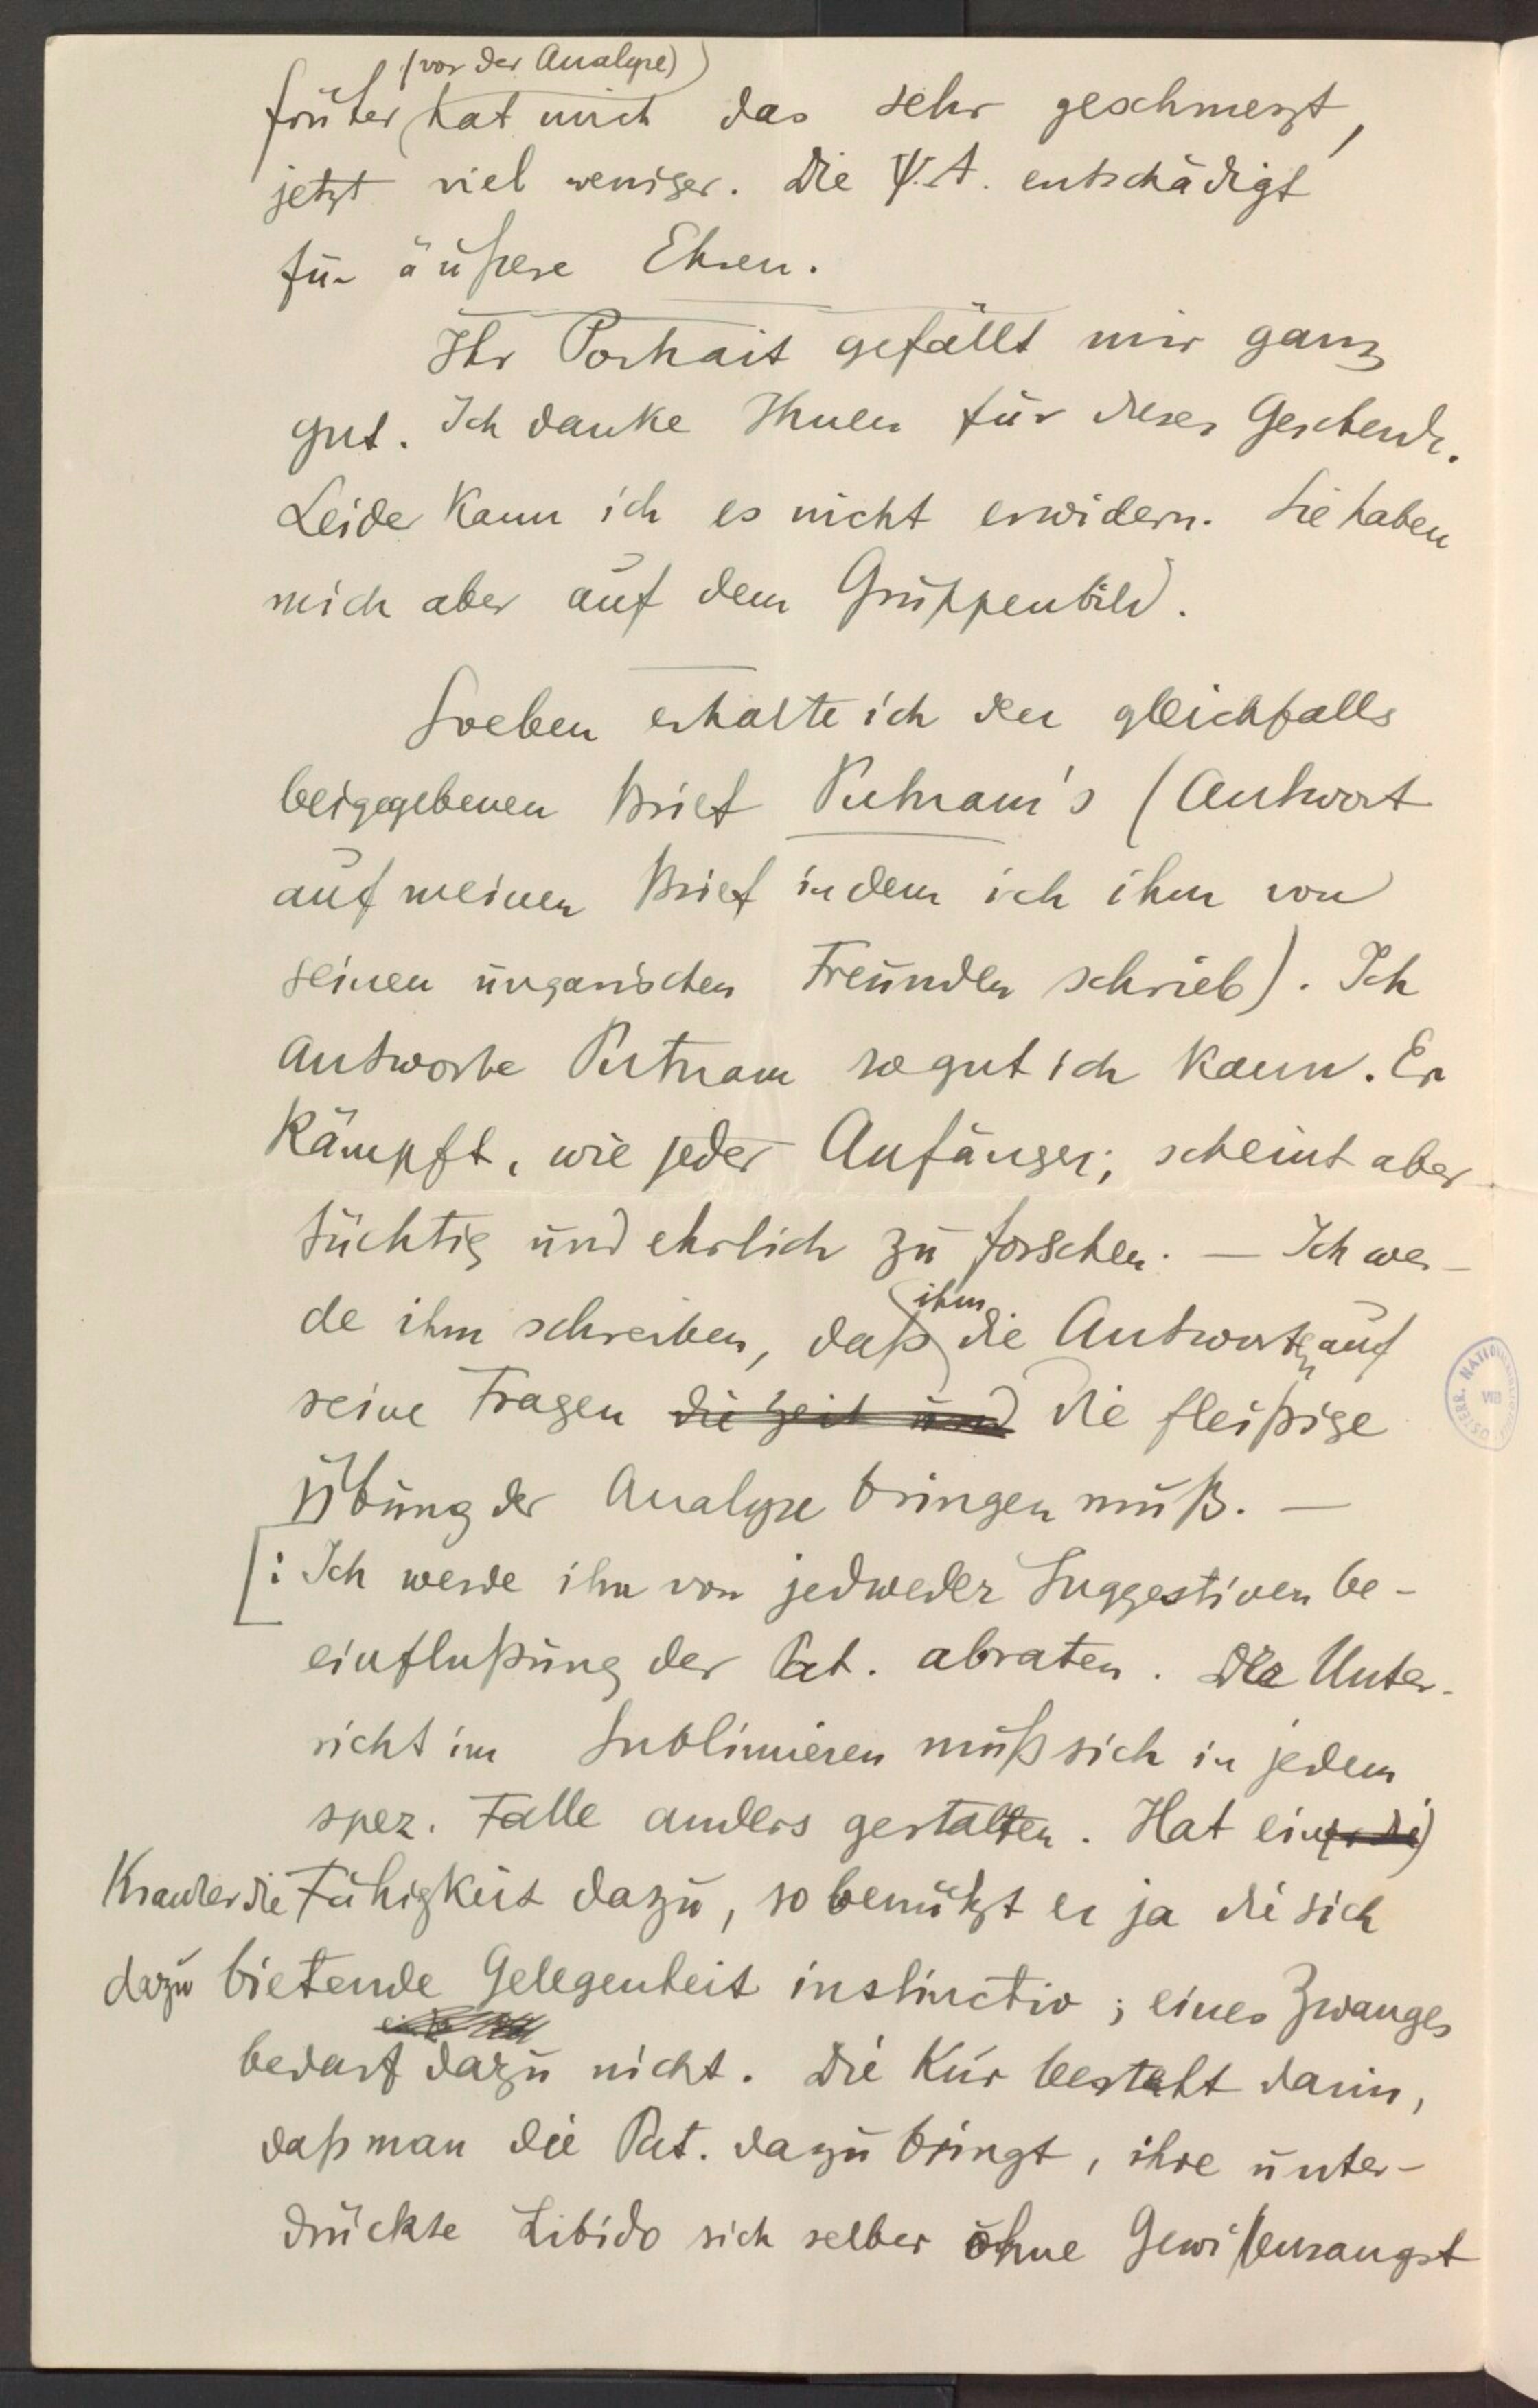 (vor der Analyse)
früher hat mich das sehr geschmerzt,
jetzt viel weniger. Die Ψ.A. entschädigt
für äußere Ehren.
Ihr Portrait gefällt mir ganz
gut. Ich danke Ihnen für dieses Geschenk.
Leider kann ich es nicht erwidern. Sie haben
mich aber auf dem Gruppenbild.
Soeben erhalte ich den gleichfalls
beigegebenen Brief Putnam's (Antwort
auf meinen Brief in dem ich ihm von
seinen ungarischen Freunden schrieb). Ich
antworte Putnam so gut ich kann. Er
kämpft, wie jeder Anfänger; scheint aber
tüchtig und ehrlich zu forschen. — Ich wer-
de ihm schreiben, daß ihm die Antworten auf
seine Fragen die Zeit und die fleißige
Übung der Analyse bringen muß. —
[: Ich werde ihn von jedweder Suggestiven be-
einflußung der Pat. abraten. Der Unter-
richt im Sublimieren muß sich in jedem
spez. Falle anders gestalten. Hat ein
Kranker die Fähigkeit dazu, so benützt er ja die sich
dazu bietende Gelegenheit instinctiv; eines Zwanges
bedarf dazu nicht. Die Kur besteht darin,
daß man die Pat. dazu bringt, ihre unter-
drückte Libido sich selber ohne Gewißensangst